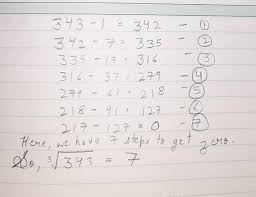 343 - 1 = 342 - ①
342 - 7 = 335 - ②
335 - 19 = 316 - ③
316 - 37 = 279 - ④
279 - 61 = 218 - ⑤
218 - 91 = 127 - ⑥
217 - 127 = 0 - ⑦
Here, we have 7 steps to get zero.
So, ∛343 = 7